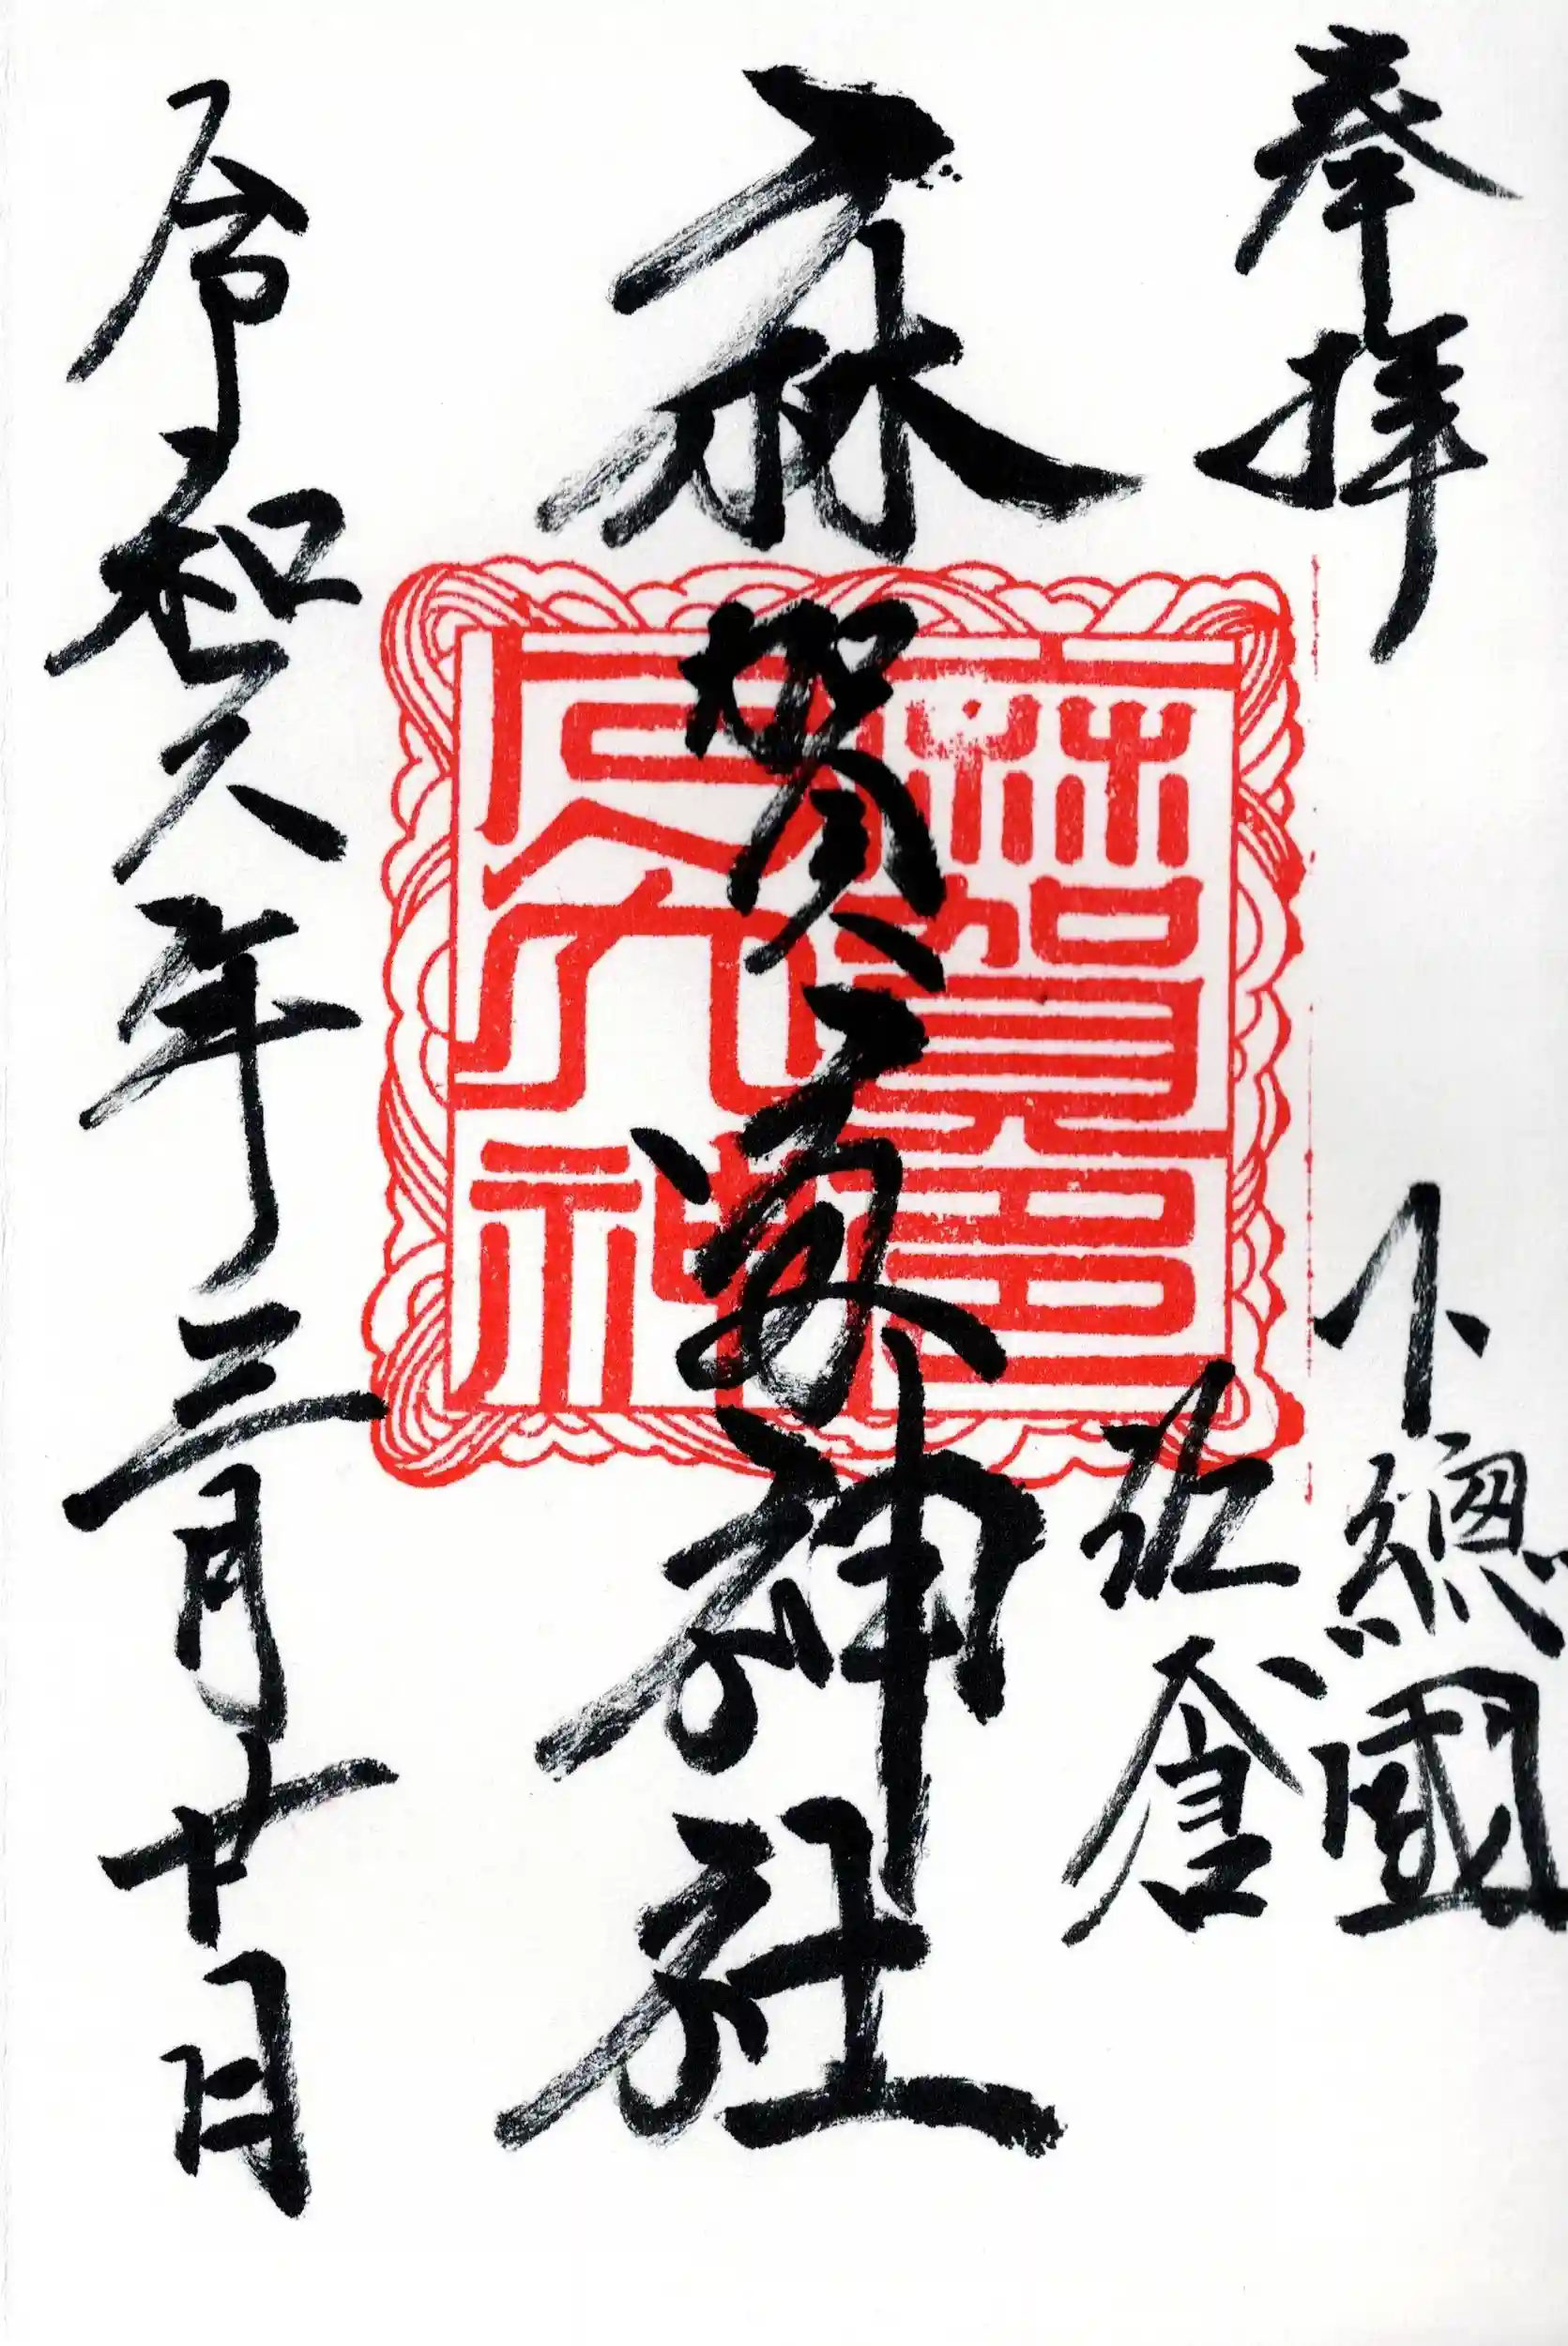 奉拝
下總國
佐倉
麻賀多神社
令和六年三月廿日
麻賀多
大神